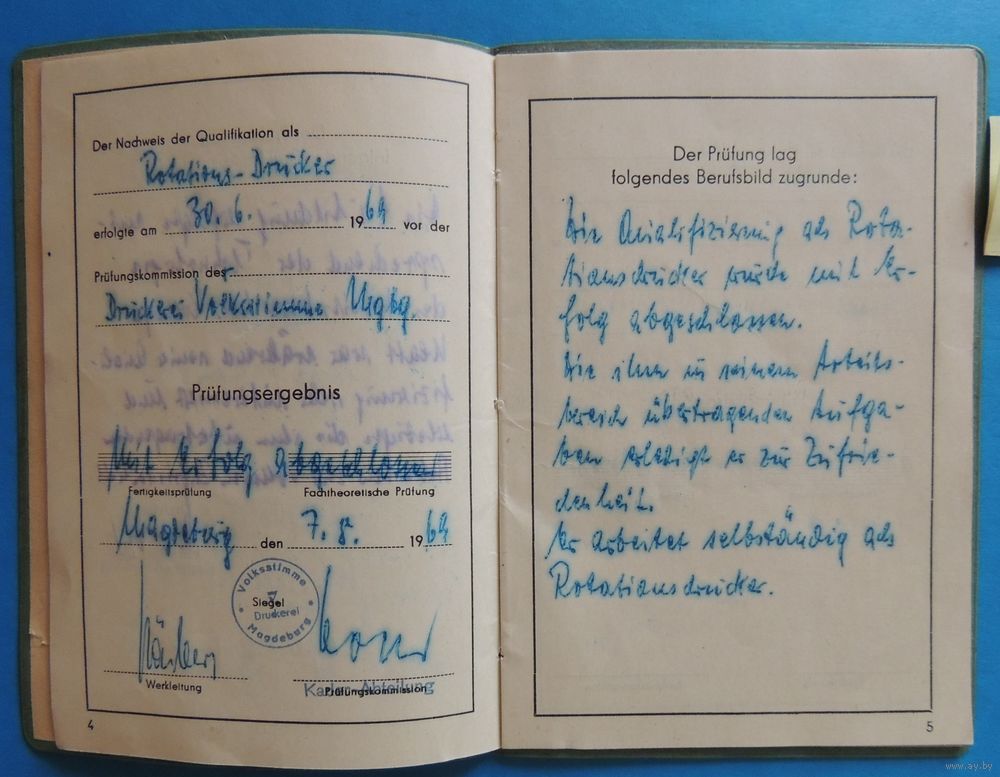 Der Nachweis der Qualifikation als
Rotations-Drucker
erfolgte am 30.6. 1964 vor der
Prüfungskommission der
Druckerei Volksstimme Mgbg.
Prüfungsergebnis
Mit Erfolg abgeschlossen
Fertigkeitsprüfung Fachtheoretische Prüfung
Magdeburg den 7.8. 1964
Volksstimme
Siegel
7
Druckerei
Magdeburg
Werkleitung
Prüfungskommission
Kader-Abteilung
4
Der Prüfung lag
folgendes Berufsbild zugrunde:
Die Qualifizierung als Rota-
tionsdrucker wurde mit Er-
folg abgeschlossen.
Die ihm in seinem Arbeits-
bereich übertragenden Aufga-
ben erledigt er zur Zufrie-
denheit.
Er arbeitet selbständig als
Rotationsdrucker.
5
www.ay.by